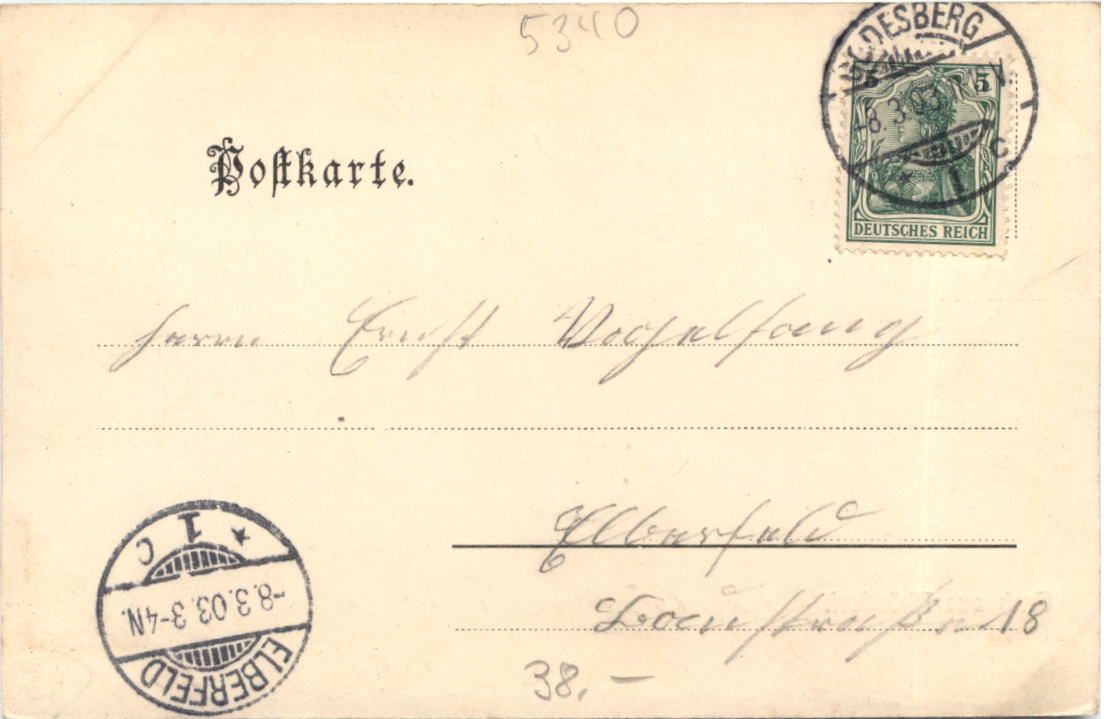 5340
GODESBERG
5 5
-8.3.03.
1 c
DEUTSCHES REICH
Postkarte.
Herrn Ernst Vogelsang
Elberfeld
18
1 c
-8.3.03.3-4N.
ELBERFELD
38.-